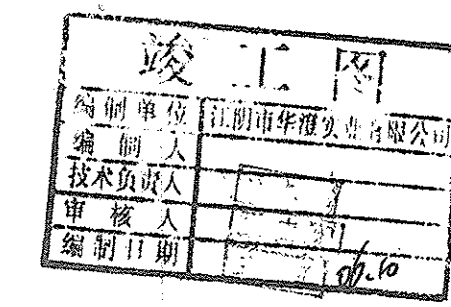 竣工图
编制单位 江阴市华澄实业有限公司
编制人
技术负责人
审核人
编制日期 06.10